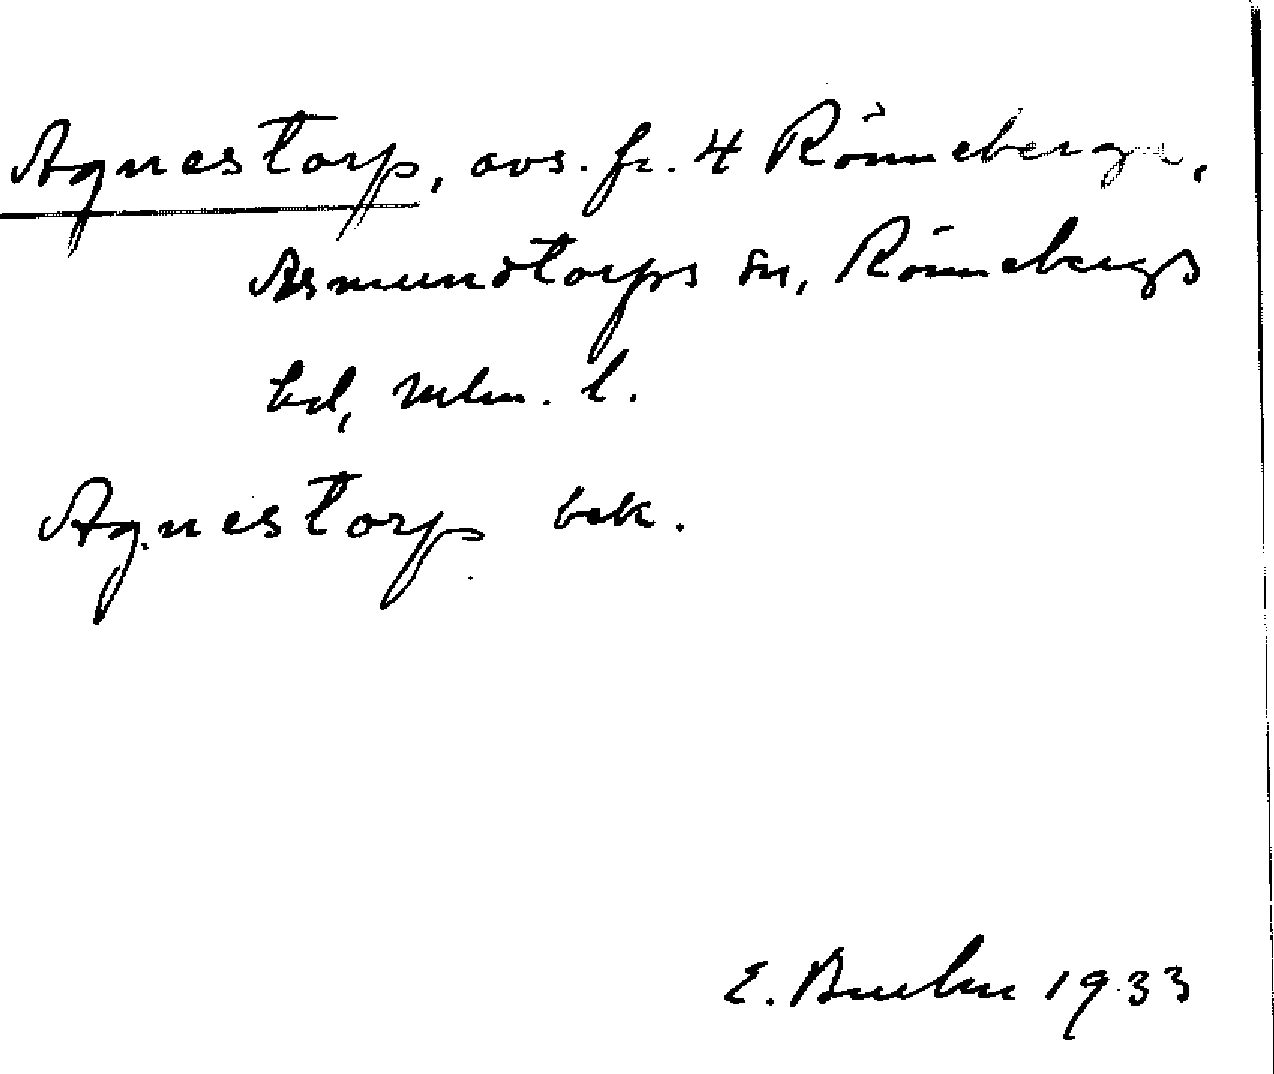 Agnestorp, avs. fr. 4 Rönneberga,
Asmundtorps sn, Rönnebergs
hd, Mlm. l.
Agnestorp bek.
E. Buhr 1933